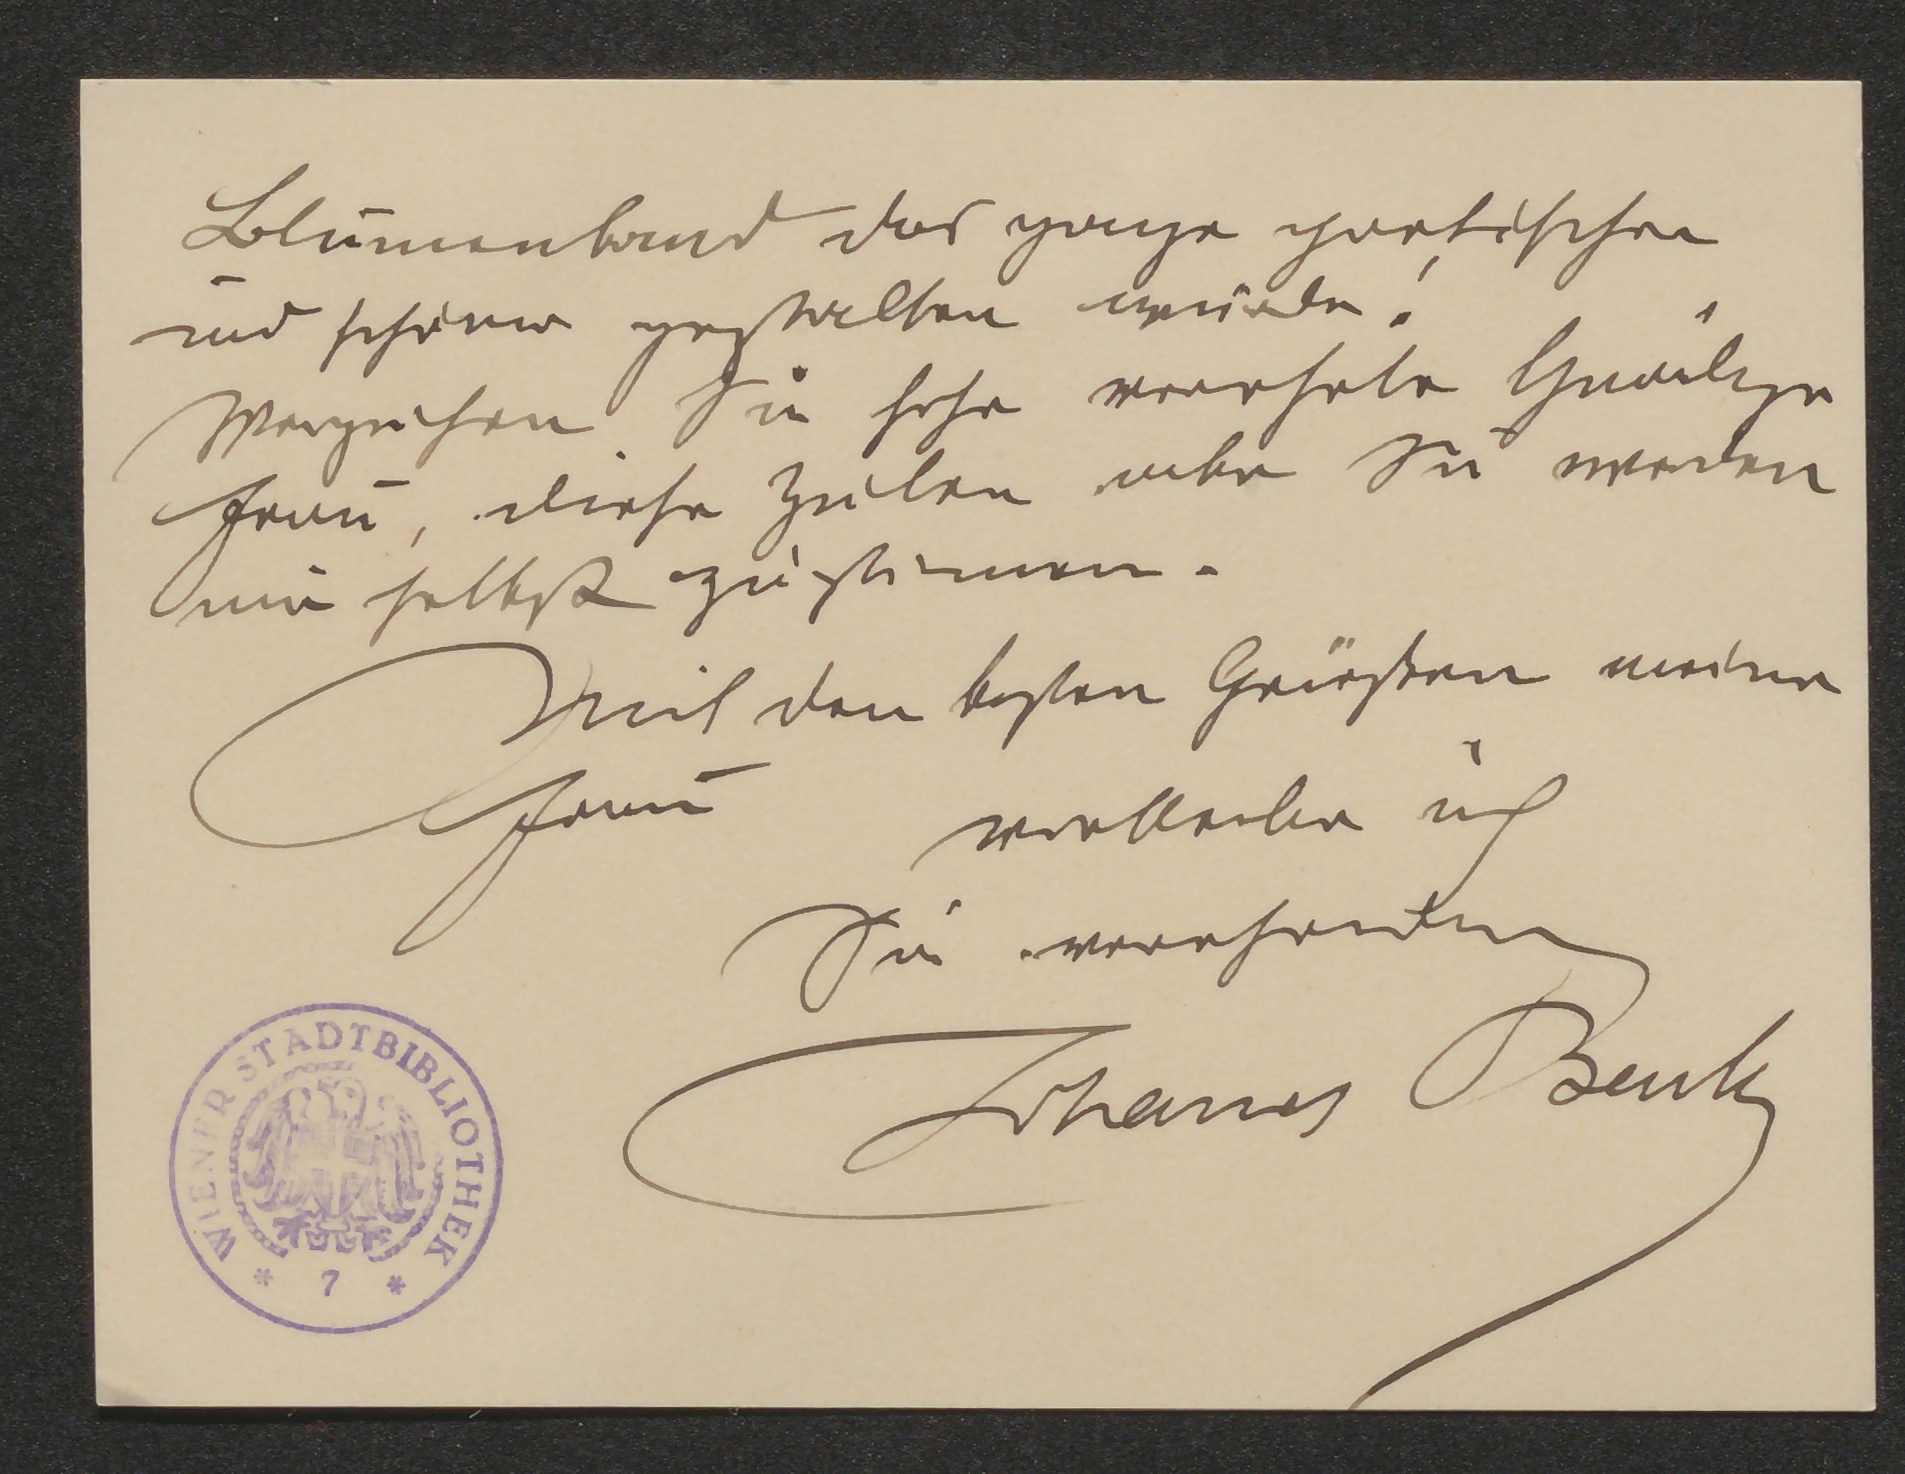 Blumenband das ganze poetischer
und schöner gestalten würde!
Verzeihen Sie sehr verehrte Gnädige
Frau, diese Zeilen aber Sie werden
mir selbst zustimmen.
Mit den besten Grüßen meiner
Frau verbleibe ich
Sie verehrender
Johannes Benk
WIENER STADTBIBLIOTHEK
* 7 *